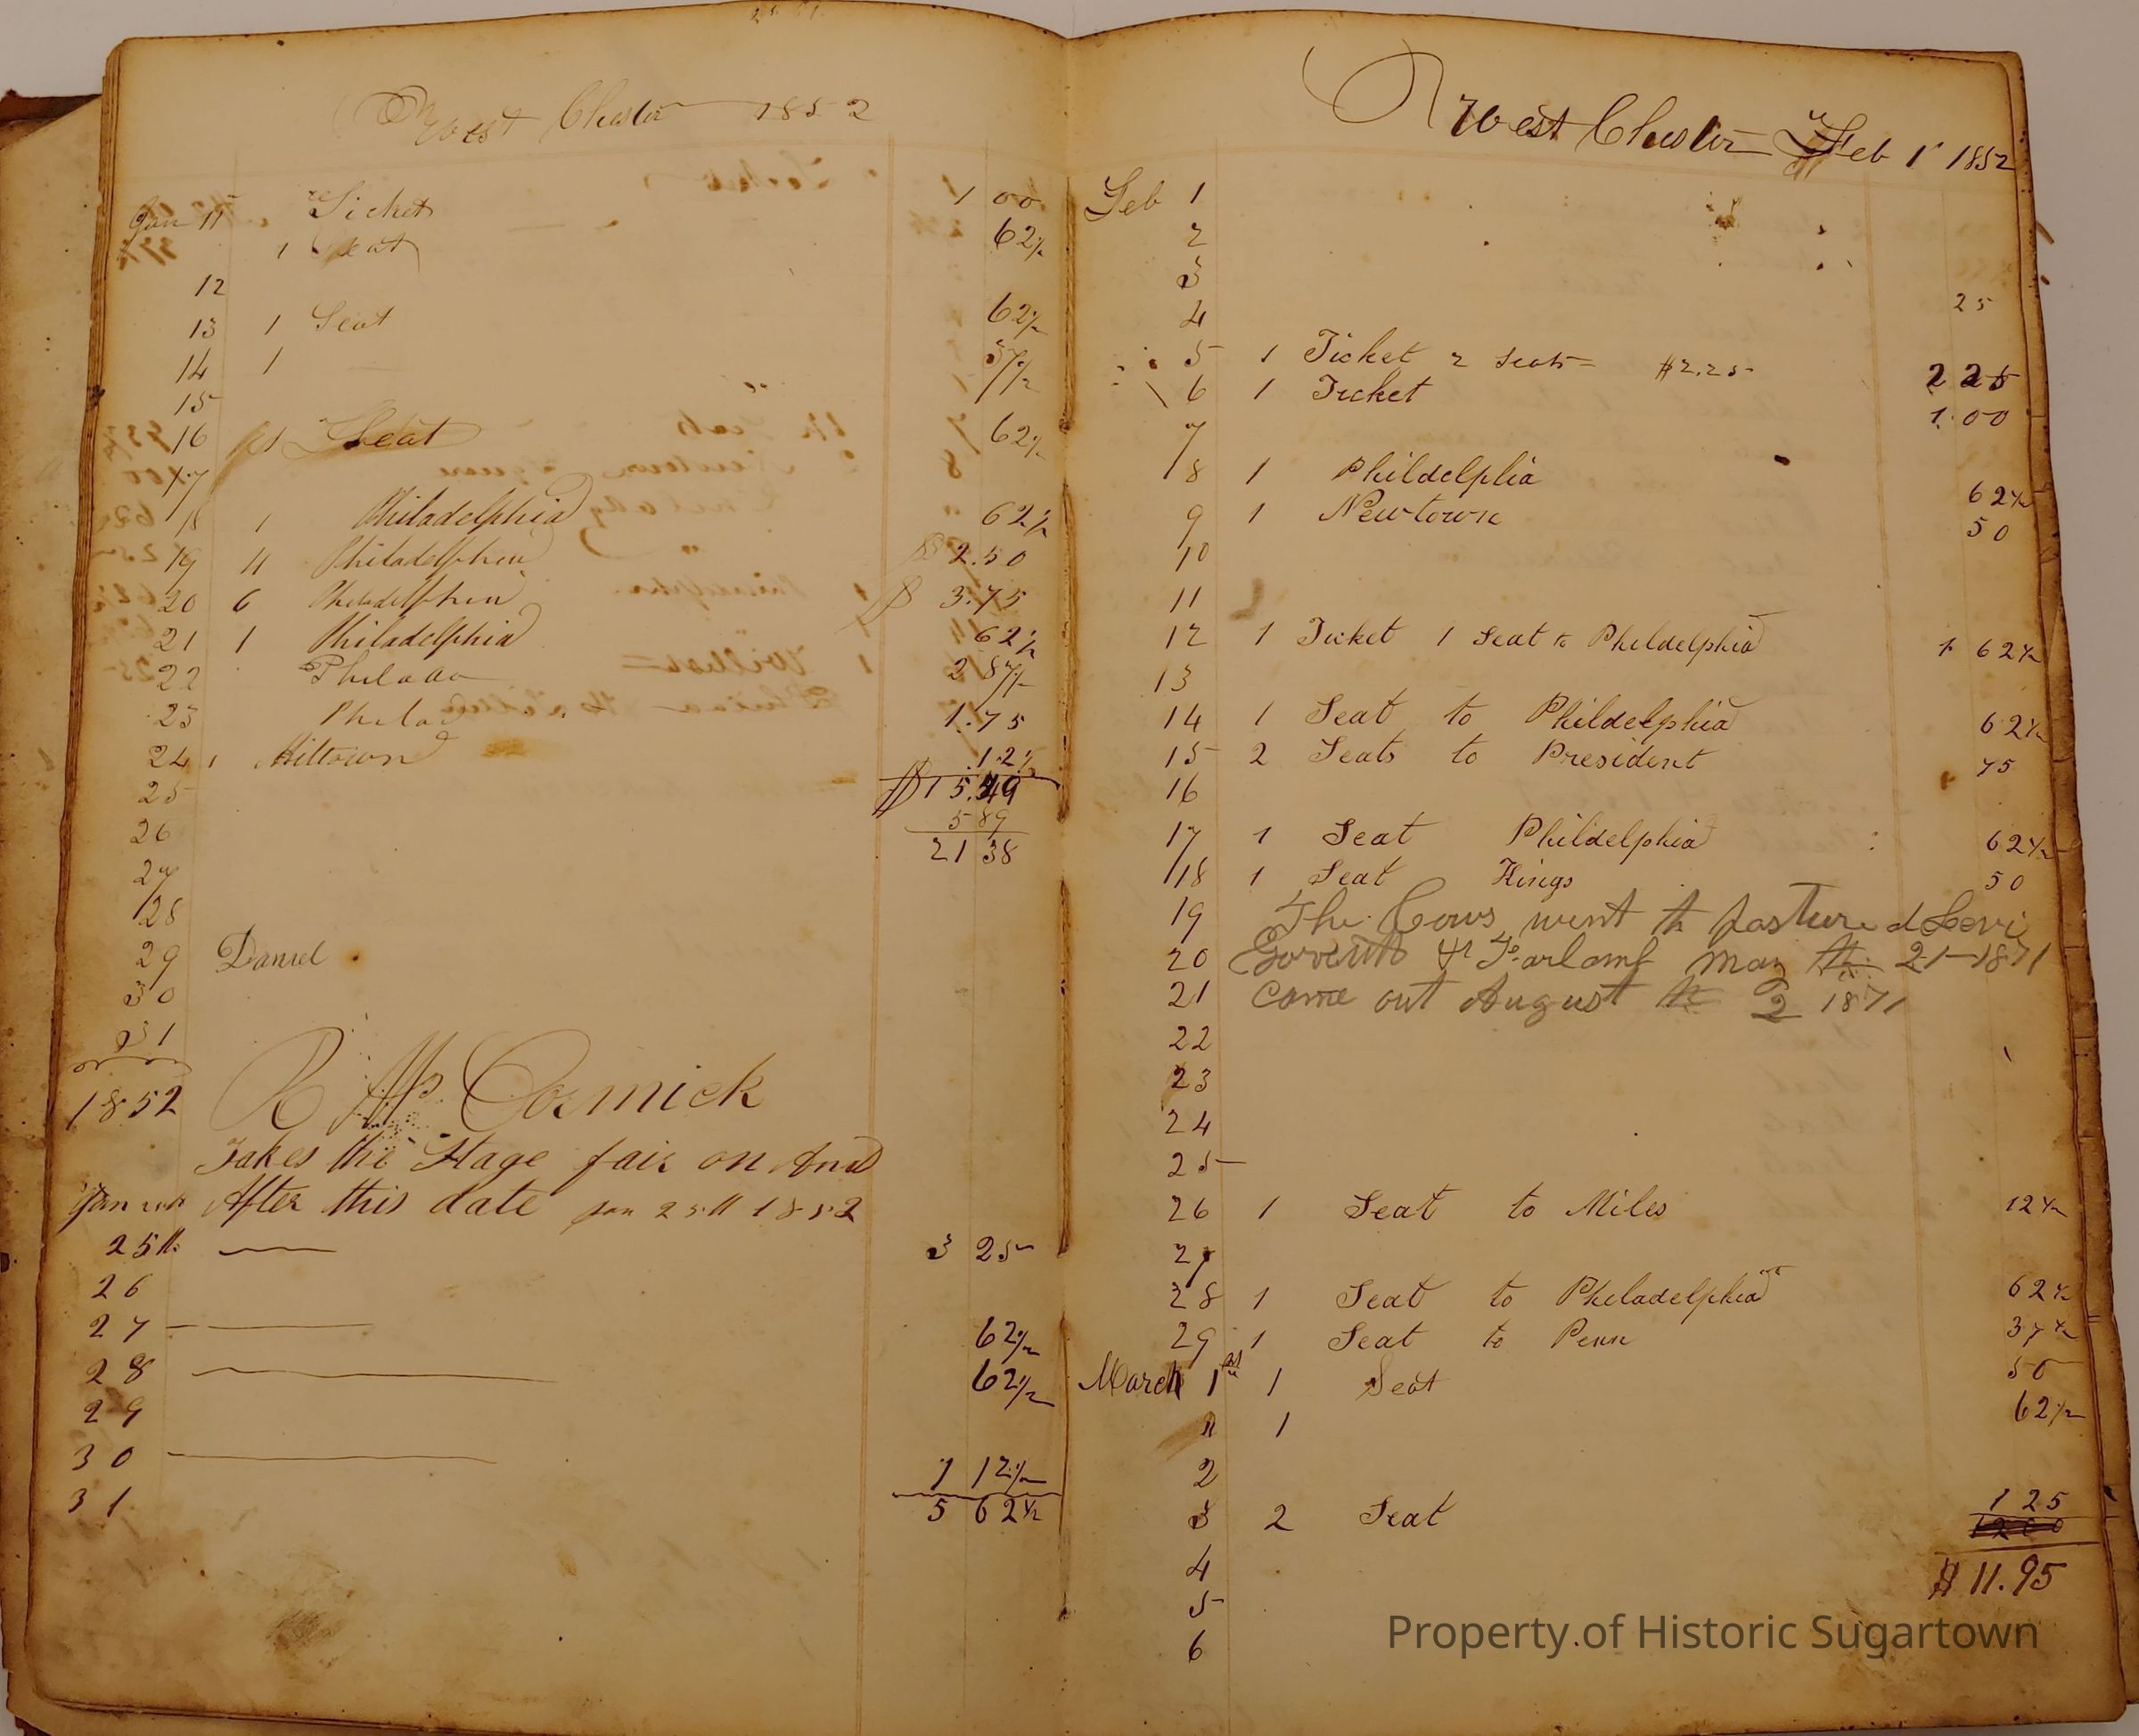 West Chester 1852
Jan 11 Ticket 1 00
1 Seat 62½
12
13 1 Seat 62½
14 1 37½
15
16 Seat 62½
17
18 1 Philadelphia 62½
19 4 Philadelphia $2.50
20 6 Philadelphia $3.75
21 1 Philadelphia 62½
22 Philada 2 87½
23 Philad 1.75
24 1 Miltown .12½
25 $15.49
26 5 89
21 38
27
28
29 Daniel
30
31
1852 R Mc Cormick
Takes the Stage fair on And
Jan After this date Jan 25th 1852
25th 3 25
26
27 62½
28 62½
29
30 1 12½
31 5 62½
West Chester Feb 1st 1852
Feb 1
2
3
4 25
5 1 Ticket 2 Seats = $2.25 2 25
6 1 Ticket 1.00
7
8 1 Phildelphia 62½
9 1 Newtown 50
10
11
12 1 Ticket 1 Seat to Phildelphia 1 62½
13
14 1 Seat to Phildelphia 62½
15 2 Seats to President 75
16
17 1 Seat Phildelphia 62½
18 1 Seat Kings 50
19 The Cows went to pasture
20 May 21-1871
21 Came out August 2 1871
22
23
24
25
26 1 Seat to Miles 12½
27
28 1 Seat to Philadelphia 62½
29 1 Seat to Penn 37½
March 1st 1 Seat 50
" 1 62½
2
3 2 Seat 1 25
4 $11.95
5
6
Property of Historic Sugartown